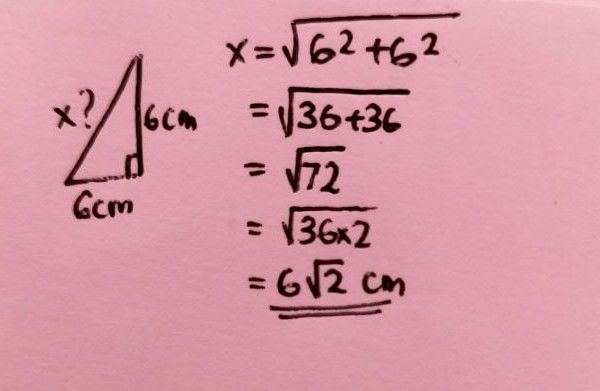 x?
6cm
6cm
x = √6² + 6²
= √36+36
= √72
= √36x2
= 6√2 cm